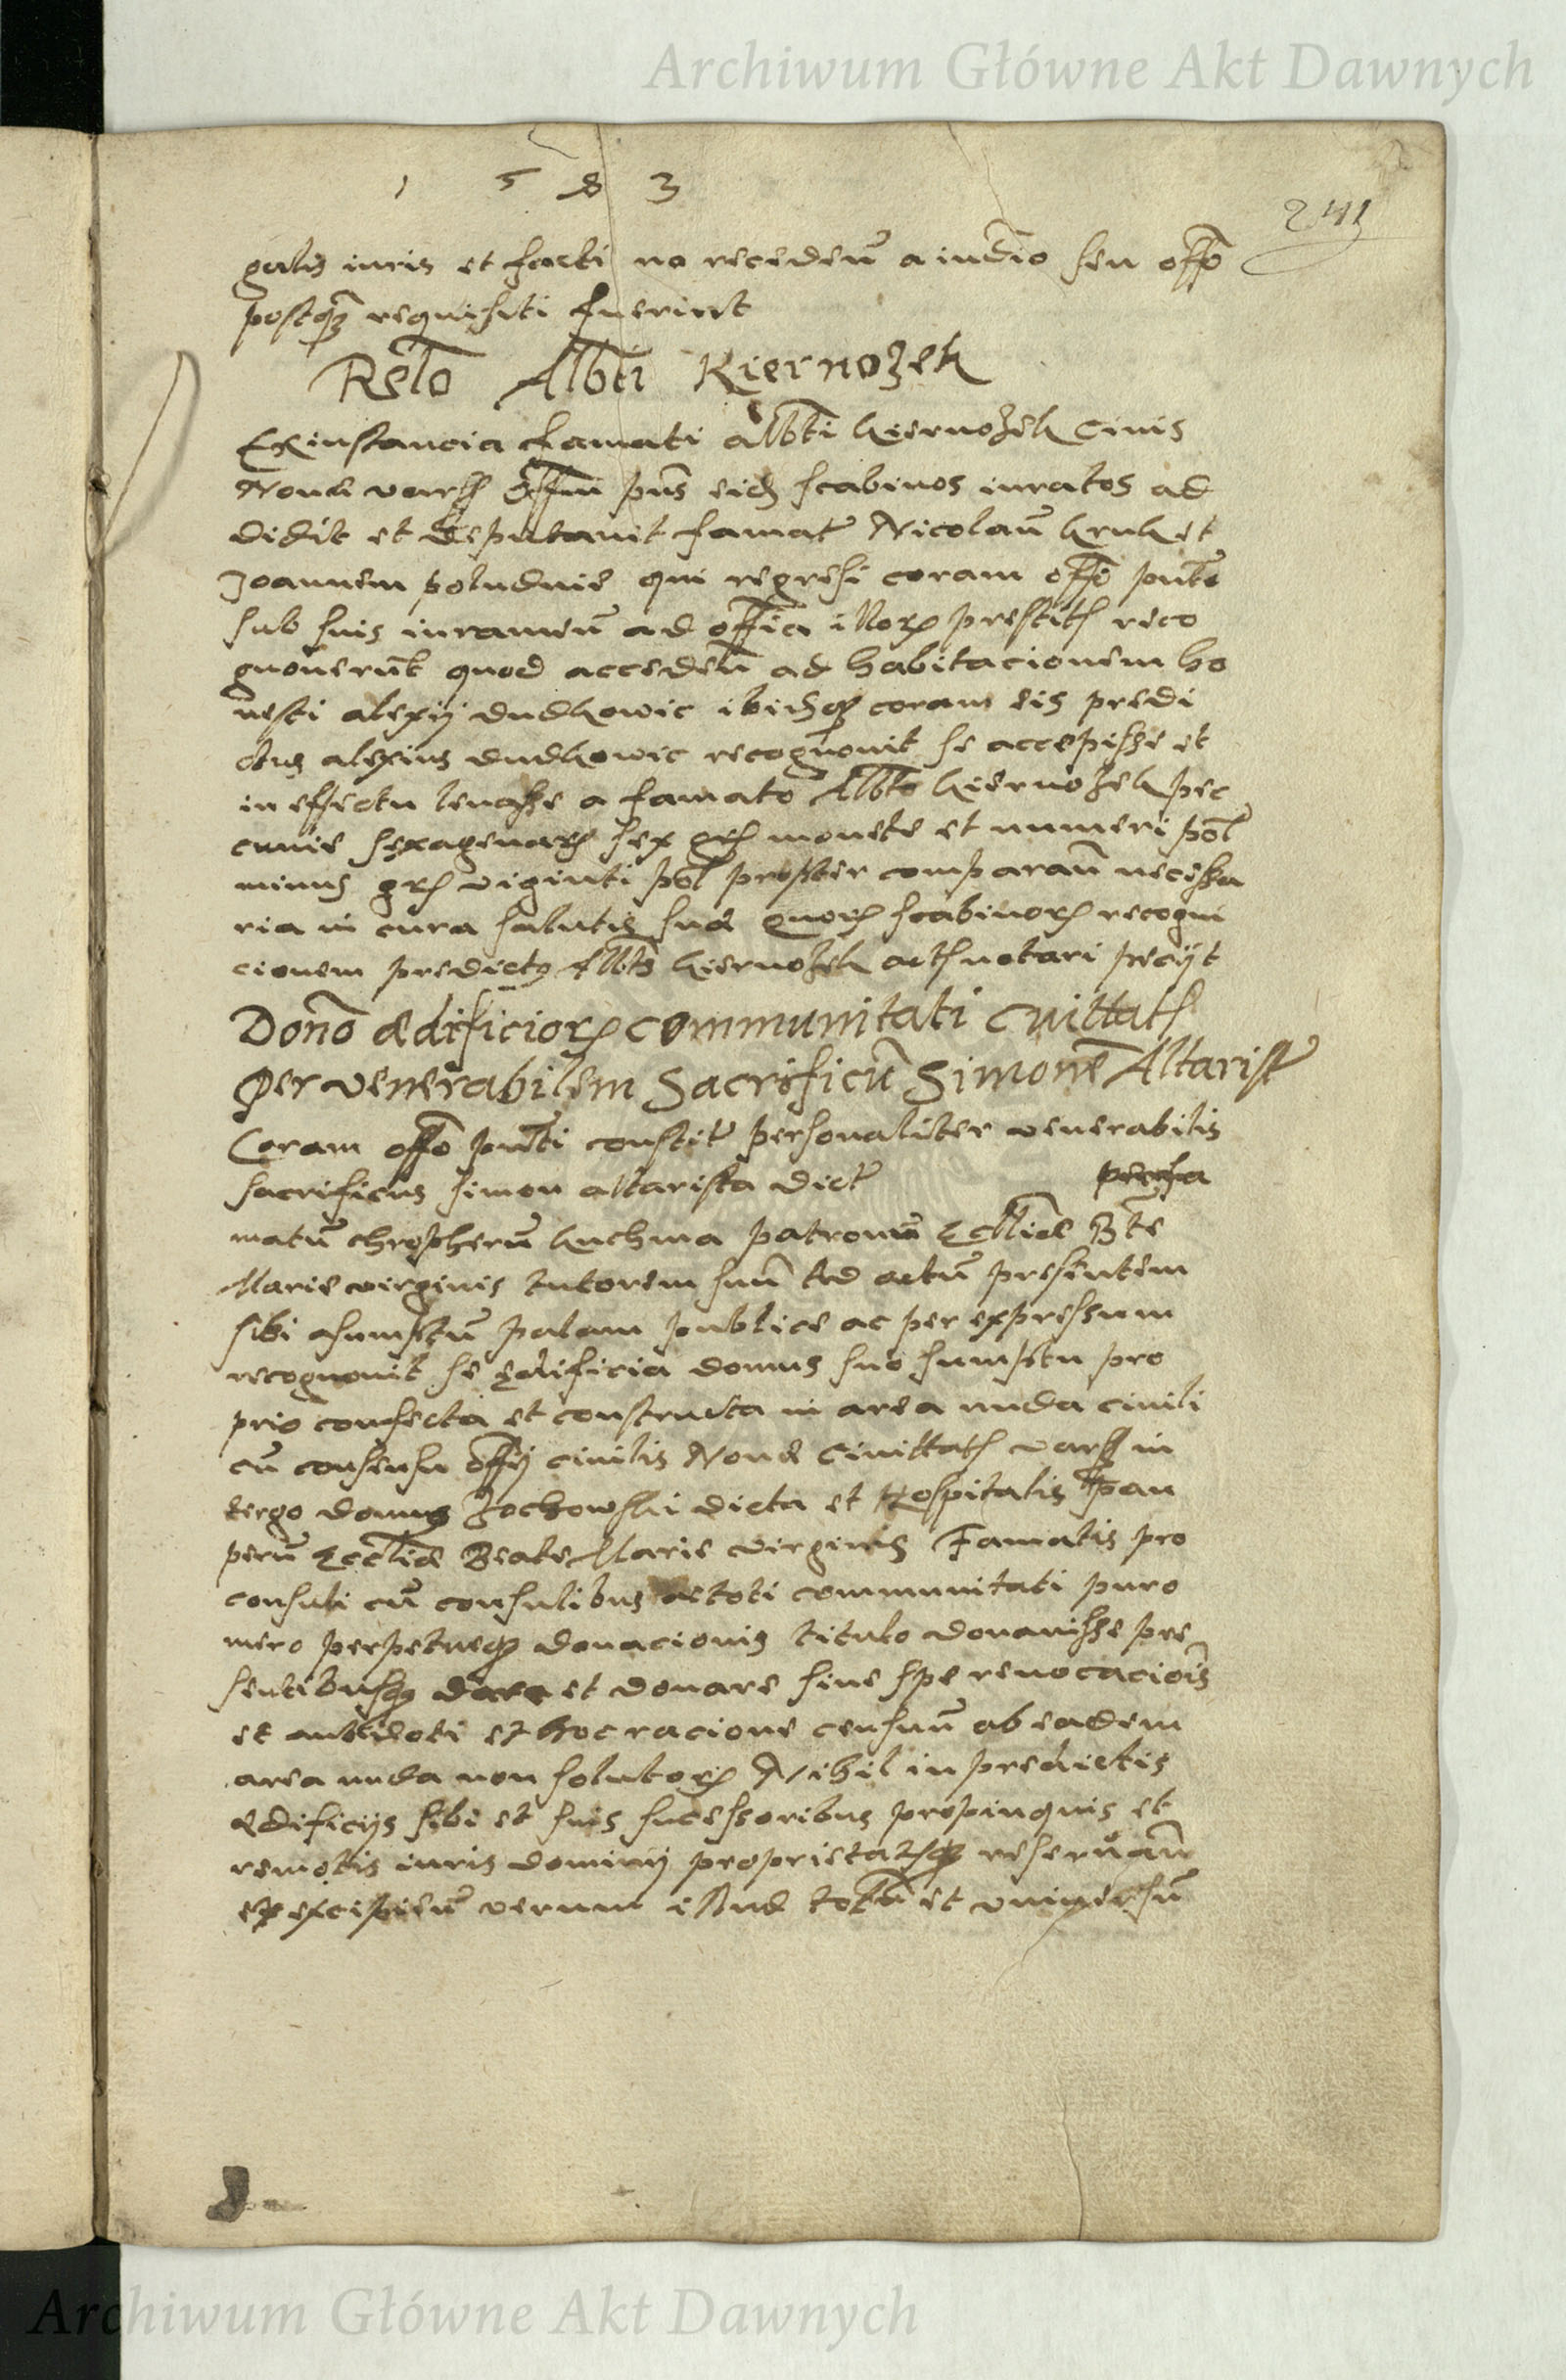 Archiwum Główne Akt Dawnych
1 5 8 3
241
galis iuris et facti no recedeñ a iudĩo seu offo
postq̃ requisiti fuerint
Relo Albti Kiernozek
Ex instancia famati Albti Kiernozek Civis
Noue Vars offm pns eid scabinos iuratos ad
didit et deputauit famat Nicolaũ Kruk et
Joannem Poludnie qui regresi coram offo pnte
sub suis iurameñ ad officia illor prestit reco
gnouerũt quod accedeñ ad habitacionem ho
nesti Alexij Dudkowic ibidq coram eis predi
ctus Alexius Dudkowic recognouit se accepisse et
in effectu leuasse a famato Albto Kiernozek pec
cunie sexagenar sex gr monete et numeri pol
minus gr viginti pol propter comparañ necessa
ria in cura salutis sue quor scabinor recogni
cionem predictus Albts Kiernozek act notari petiit
Dono ædificior communitati Ciuittat
Per venerabilem Sacrificũ Simonẽ Altarist
Coram offo pnti constit personaliter venerabilis
sacrificus Simon altarista dict per fa
matũ Chropherũ Kuchma patronũ Ecclliæ Bte
Marie virginis tutorem suũ ad actũ presentem
sibi asumptũ palam publice ac per expressum
recognouit se ędificia domus suo sumptu pro
prio confecta et constructa in area nuda ciuili
cũ consensu offij ciuilis Nouæ Ciuittat Vars in
tergo domus Zochowski dicta et Hospitalis pau
perũ Ecctiæ Beate Marie virginis Famatis pro
consuli cũ consulibus ac toti communitati puro
mero perpetueq donacionis titulo donauisse pre
sentibusq dare et donare sine spe reuocaciois
et antidoti et hoc racione censuũ ab eadem
area nuda non solutor Nihil in predictis
ædificijs sibi et suis sucessoribus propinquis et
remotis iuris dominij proprietatisq reseruañ
et excipieñ verum illud totũ et vniuersũ
Archiwum Główne Akt Dawnych